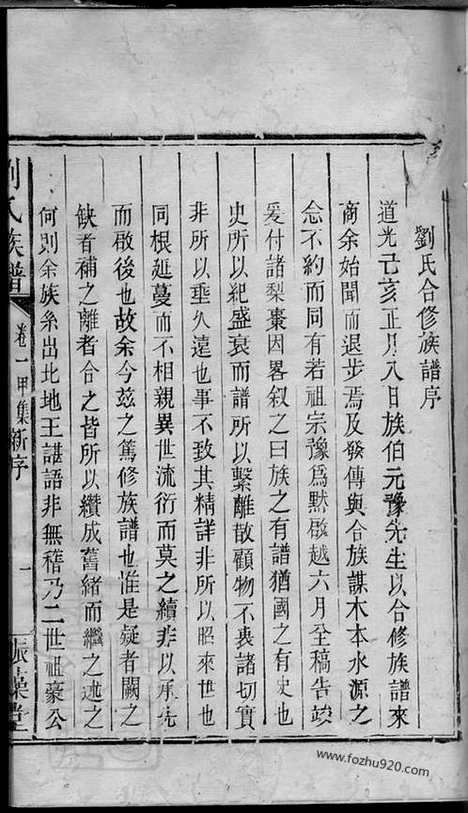 劉氏合修族譜序
道光己亥正月八日族伯元豫先生以合修族譜來
商余始聞而退步焉及發傳與合族謀木本水源之
念不約而同有若祖宗豫爲默啟越六月全稿告竣
爰付諸梨棗因畧叙之曰族之有譜猶國之有史也
史所以紀盛衰而譜所以繫離散顧物不衷諸切實
非所以垂久遠也事不致其精詳非所以昭來世也
同根延蔓而不相親異世流衍而莫之續非以承先
而啟後也故余今兹之篤修族譜也惟是疑者闕之
缺者補之離者合之皆所以纘成舊緒而繼之述之
何則余族系出北地王諶語非無稽乃二世祖蒙公
劉氏族譜 卷一甲集新序 一 振藻堂
www.fozhu920.com